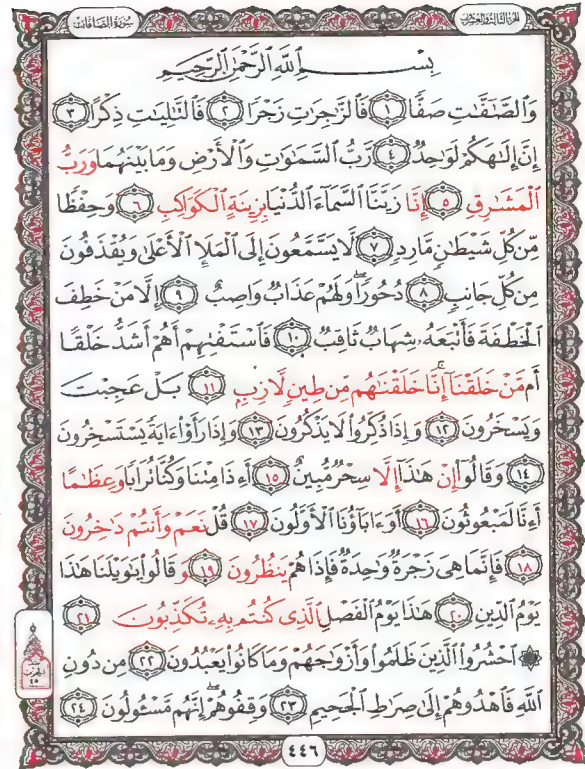 الجزء الثالث والعشرون
سورة الصافات
بِسْمِ ٱللَّهِ ٱلرَّحْمَٰنِ ٱلرَّحِيمِ
وَٱلصَّٰٓفَّٰتِ صَفًّا ١ فَٱلزَّٰجِرَٰتِ زَجْرًا ٢ فَٱلتَّٰلِيَٰتِ ذِكْرًا ٣
إِنَّ إِلَٰهَكُمْ لَوَٰحِدٌ ٤ رَّبُّ ٱلسَّمَٰوَٰتِ وَٱلْأَرْضِ وَمَا بَيْنَهُمَا وَرَبُّ
ٱلْمَشَٰرِقِ ٥ إِنَّا زَيَّنَّا ٱلسَّمَآءَ ٱلدُّنْيَا بِزِينَةٍ ٱلْكَوَاكِبِ ٦ وَحِفْظًا
مِّن كُلِّ شَيْطَٰنٍ مَّارِدٍ ٧ لَّا يَسَّمَّعُونَ إِلَى ٱلْمَلَإِ ٱلْأَعْلَىٰ وَيُقْذَفُونَ
مِن كُلِّ جَانِبٍ ٨ دُحُورًا ۖ وَلَهُمْ عَذَابٌ وَاصِبٌ ٩ إِلَّا مَنْ خَطِفَ
ٱلْخَطْفَةَ فَأَتْبَعَهُۥ شِهَابٌ ثَاقِبٌ ١٠ فَٱسْتَفْتِهِمْ أَهُمْ أَشَدُّ خَلْقًا
أَم مَّنْ خَلَقْنَآ ۚ إِنَّا خَلَقْنَٰهُم مِّن طِينٍ لَّازِبٍۭ ١١ بَلْ عَجِبْتَ
وَيَسْخَرُونَ ١٢ وَإِذَا ذُكِّرُوا۟ لَا يَذْكُرُونَ ١٣ وَإِذَا رَأَوْا۟ ءَايَةً يَسْتَسْخِرُونَ
١٤ وَقَالُوٓا۟ إِنْ هَٰذَآ إِلَّا سِحْرٌ مُّبِينٌ ١٥ أَءِذَا مِتْنَا وَكُنَّا تُرَابًا وَعِظَٰمًا
أَءِنَّا لَمَبْعُوثُونَ ١٦ أَوَءَابَآؤُنَا ٱلْأَوَّلُونَ ١٧ قُلْ نَعَمْ وَأَنتُمْ دَٰخِرُونَ
١٨ فَإِنَّمَا هِىَ زَجْرَةٌ وَٰحِدَةٌ فَإِذَا هُمْ يَنظُرُونَ ١٩ وَقَالُوا۟ يَٰوَيْلَنَا هَٰذَا
يَوْمُ ٱلدِّينِ ٢٠ هَٰذَا يَوْمُ ٱلْفَصْلِ ٱلَّذِى كُنتُم بِهِۦ تُكَذِّبُونَ ٢١
۞ ٱحْشُرُوا۟ ٱلَّذِينَ ظَلَمُوا۟ وَأَزْوَٰجَهُمْ وَمَا كَانُوا۟ يَعْبُدُونَ ٢٢ مِن دُونِ
ٱللَّهِ فَٱهْدُوهُمْ إِلَىٰ صِرَٰطِ ٱلْجَحِيمِ ٢٣ وَقِفُوهُمْ ۖ إِنَّهُم مَّسْـُٔولُونَ ٢٤
نصف
الحزب
٤٥
٤٤٦